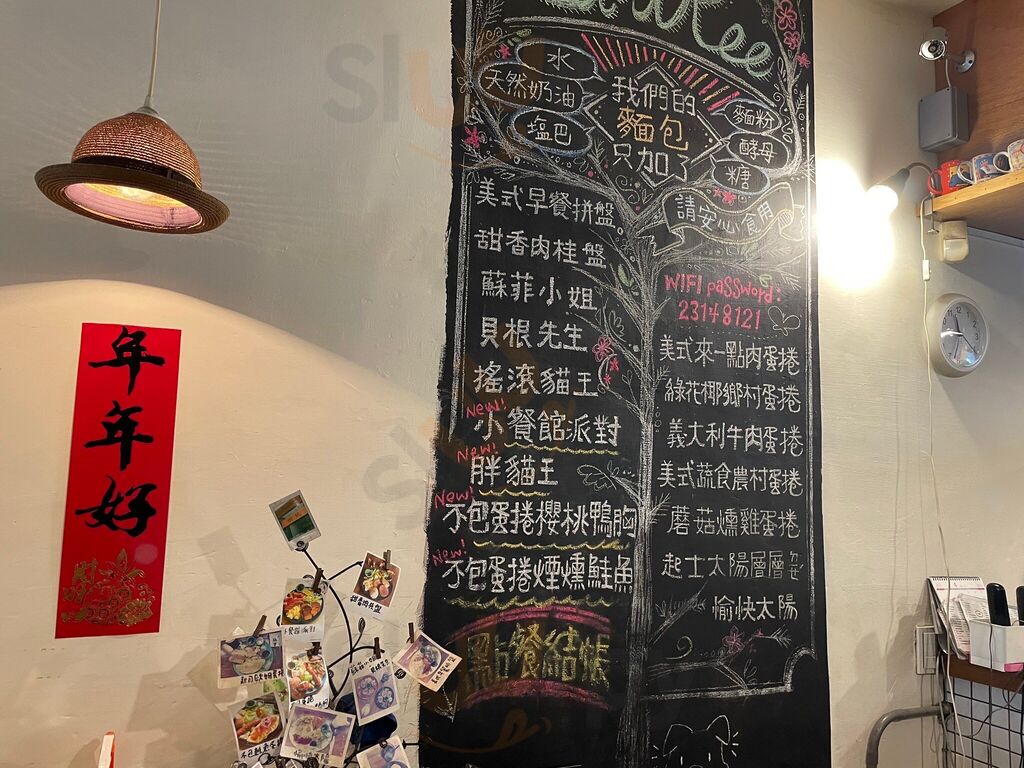 年年好
水
天然奶油
塩巴
我們的
麵包
只加了
麵粉
酵母
糖
請安心食用
美式早餐拼盤
甜香肉桂盤
蘇菲小姐
貝根先生
搖滾貓王
New! 小餐館派對
New! 胖貓王
New! 不包蛋捲櫻桃鴨胸
New! 不包蛋捲煙燻鮭魚
點餐結帳
WIFI password:
23148121
美式來一點肉蛋捲
綠花椰鄉村蛋捲
義大利牛肉蛋捲
美式蔬食農村蛋捲
蘑菇燻雞蛋捲
起士太陽層層
愉快太陽